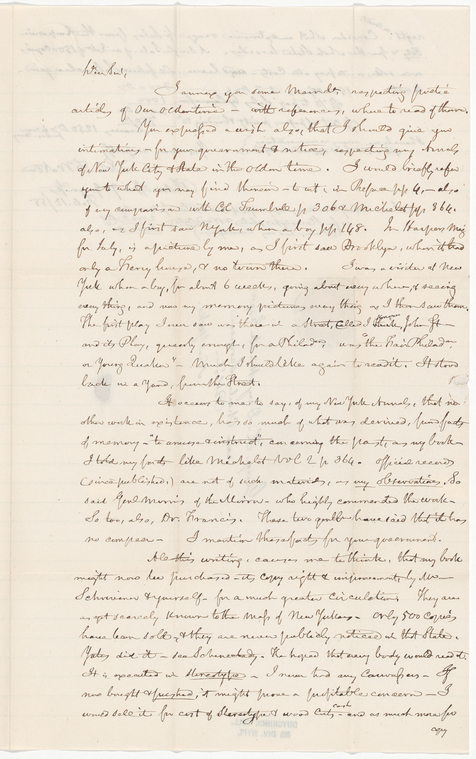 Dear Sir,
I annex you some Memoda. respecting
articles of our olden time — with references, where to read of them.
You expressed a wish also, that I should give you
intimations — for your government & notice, respecting my Annals
of New York City & State in the olden time. I would briefly refer
you to what you may find therein — to wit; in Preface pp 4, — also
of my comparison with Col. Trumbull p 306 & Michelet pp 364.
also, as I first saw NYork, when a boy pp 148. In Harpers Mag
for July, is a picture by me, as I first saw Brooklyn, when it had
only a Ferry house, & no town there. I was a visitor at New
York when a boy, for about 6 weeks, going about every where, & seeing
every thing, and now my memory pictures every thing as I then saw them.
The first play I ever saw was there in a Street, called I think, John St
and its Play, queerly enough, for a Philada. was "the Fair Philada
or Young Quakers" — Much I should like again to read it. It stood
back in a Yard, from the Street.
It occurs to me to say, of my New York Annals, that no
other work in existence, has so much of what was derived, from facts
of memory — "to amuse & instruct", concerning the past, as my book —
I told my facts like Michelet Vol 2 p 364. official records
(since published,) are not of such materials, as my observations. So
said Genl Morris of the Mirror — who highly commended the work —
So too, also, Dr. Francis. These two gentln have said that it has
no compeer — I mention these facts for your government.
All this writing, causes me to think, that my book
might now be purchased — its copy right & improvements, by Mr
& yourself — for a much greater circulation. They are
as yet scarcely known to the mass of New Yorkers — only 500 copies
have been sold, & they are never publicly noticed in that State.
Yates did it — at Schenectady. He hoped that every body would read it
It is executed in stereotype. — I never had any Canvassers — If
now bought & pushed, it might prove a profitable concern — I
would sell it for cost of Stereotype & wood Cuts — cash and as much more for
copy